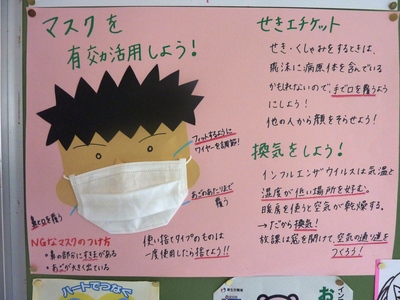 マスクを
有効活用しよう!
フィットするように
ワイヤーを調節!
鼻と口を覆う
あごのあたりまで
覆う
NGなマスクのつけ方
・鼻の部分にすき玉がある
・あごが大きく出ている
使い捨てタイプのものは
一度使用したら捨てよう!!
せきエチケット
せき・くしゃみをするときは、
飛沫に病原体を含んでいる
かもしれないので、手で口を覆うよう
にしよう!
他の人から顔をそらせよう!
換気をしよう!
インフルエンザウイルスは気温と
湿度が低い場所を好む。
暖房を使うと空気が乾燥する。
→だから換気!
放課は窓を開けて、空気の通り道を
つくろう!
ハートでつなぐ
お